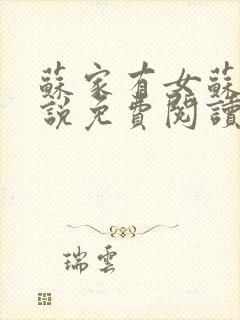 蘇家有女蘇
說免費閱讀
瑞雲